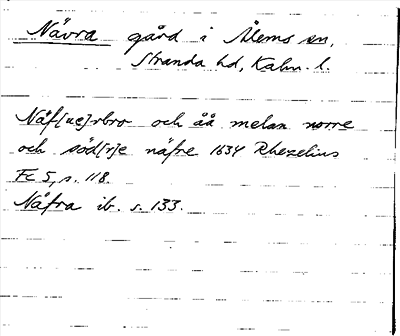 Nävra gård i Ålems sn,
Stranda hd, Kalm. l.
Näf[ue]rbro och åå melan norre
och söd[r]e näfre 1634 Rhezelius
Fc 5, s. 118.
Näfra ib. s. 133.